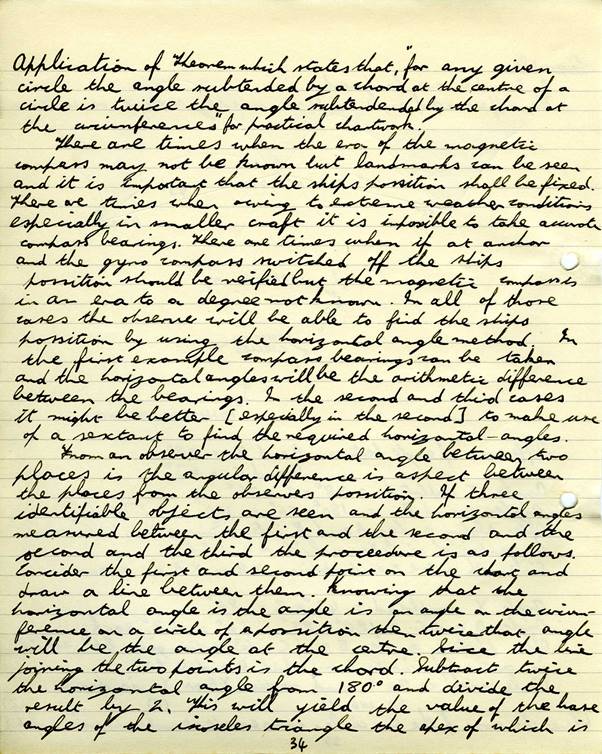 Application of Theorem which states that, "for any given
circle the angle subtended by a chord at the centre of a
circle is twice the angle subtendended by the chord at
the circumference" for practical chartwork.
There are times when the era of the magnetic
compass may not be known but landmarks can be seen
and it is important that the ships possition shall be fixed.
There are times when owing to extreme weather conditions
especially in smaller craft it is impossible to take accurate
compass bearings. There are times when if at anchor
and the gyro compass switched off the ships
possition should be verified but the magnetic compass is
in an era to a degree not known. In all of those
cases the observer will be able to find the ships
possition by using the horizontal angle method. In
the first example compass bearings can be taken
and the horizontal angles will be the arithmetic difference
between the bearings. In the second and third cases
it might be better [especially in the second] to make use
of a sextant to find the required horizontal-angles.
From an observer the horizontal angle between two
places is the angular difference is aspect between
the places from the observers possition. If three
identifiable objects are seen and the horizontal angles
measured between the first and the second and the
second and the third the proceedure is as follows.
Concider the first and second point on the chart and
draw a line between them. Knowing that the
horizontal angle is the angle is an angle on the circum-
ference on a circle of a possition then twice that angle
will be the angle at the cetre. Since the line
joining the two points is the chord. Subtract twice
the horizontal angle from 180° and divide the
result by 2. This will yield the value of the base
angles of the isoseles triangle the apex of which is
34